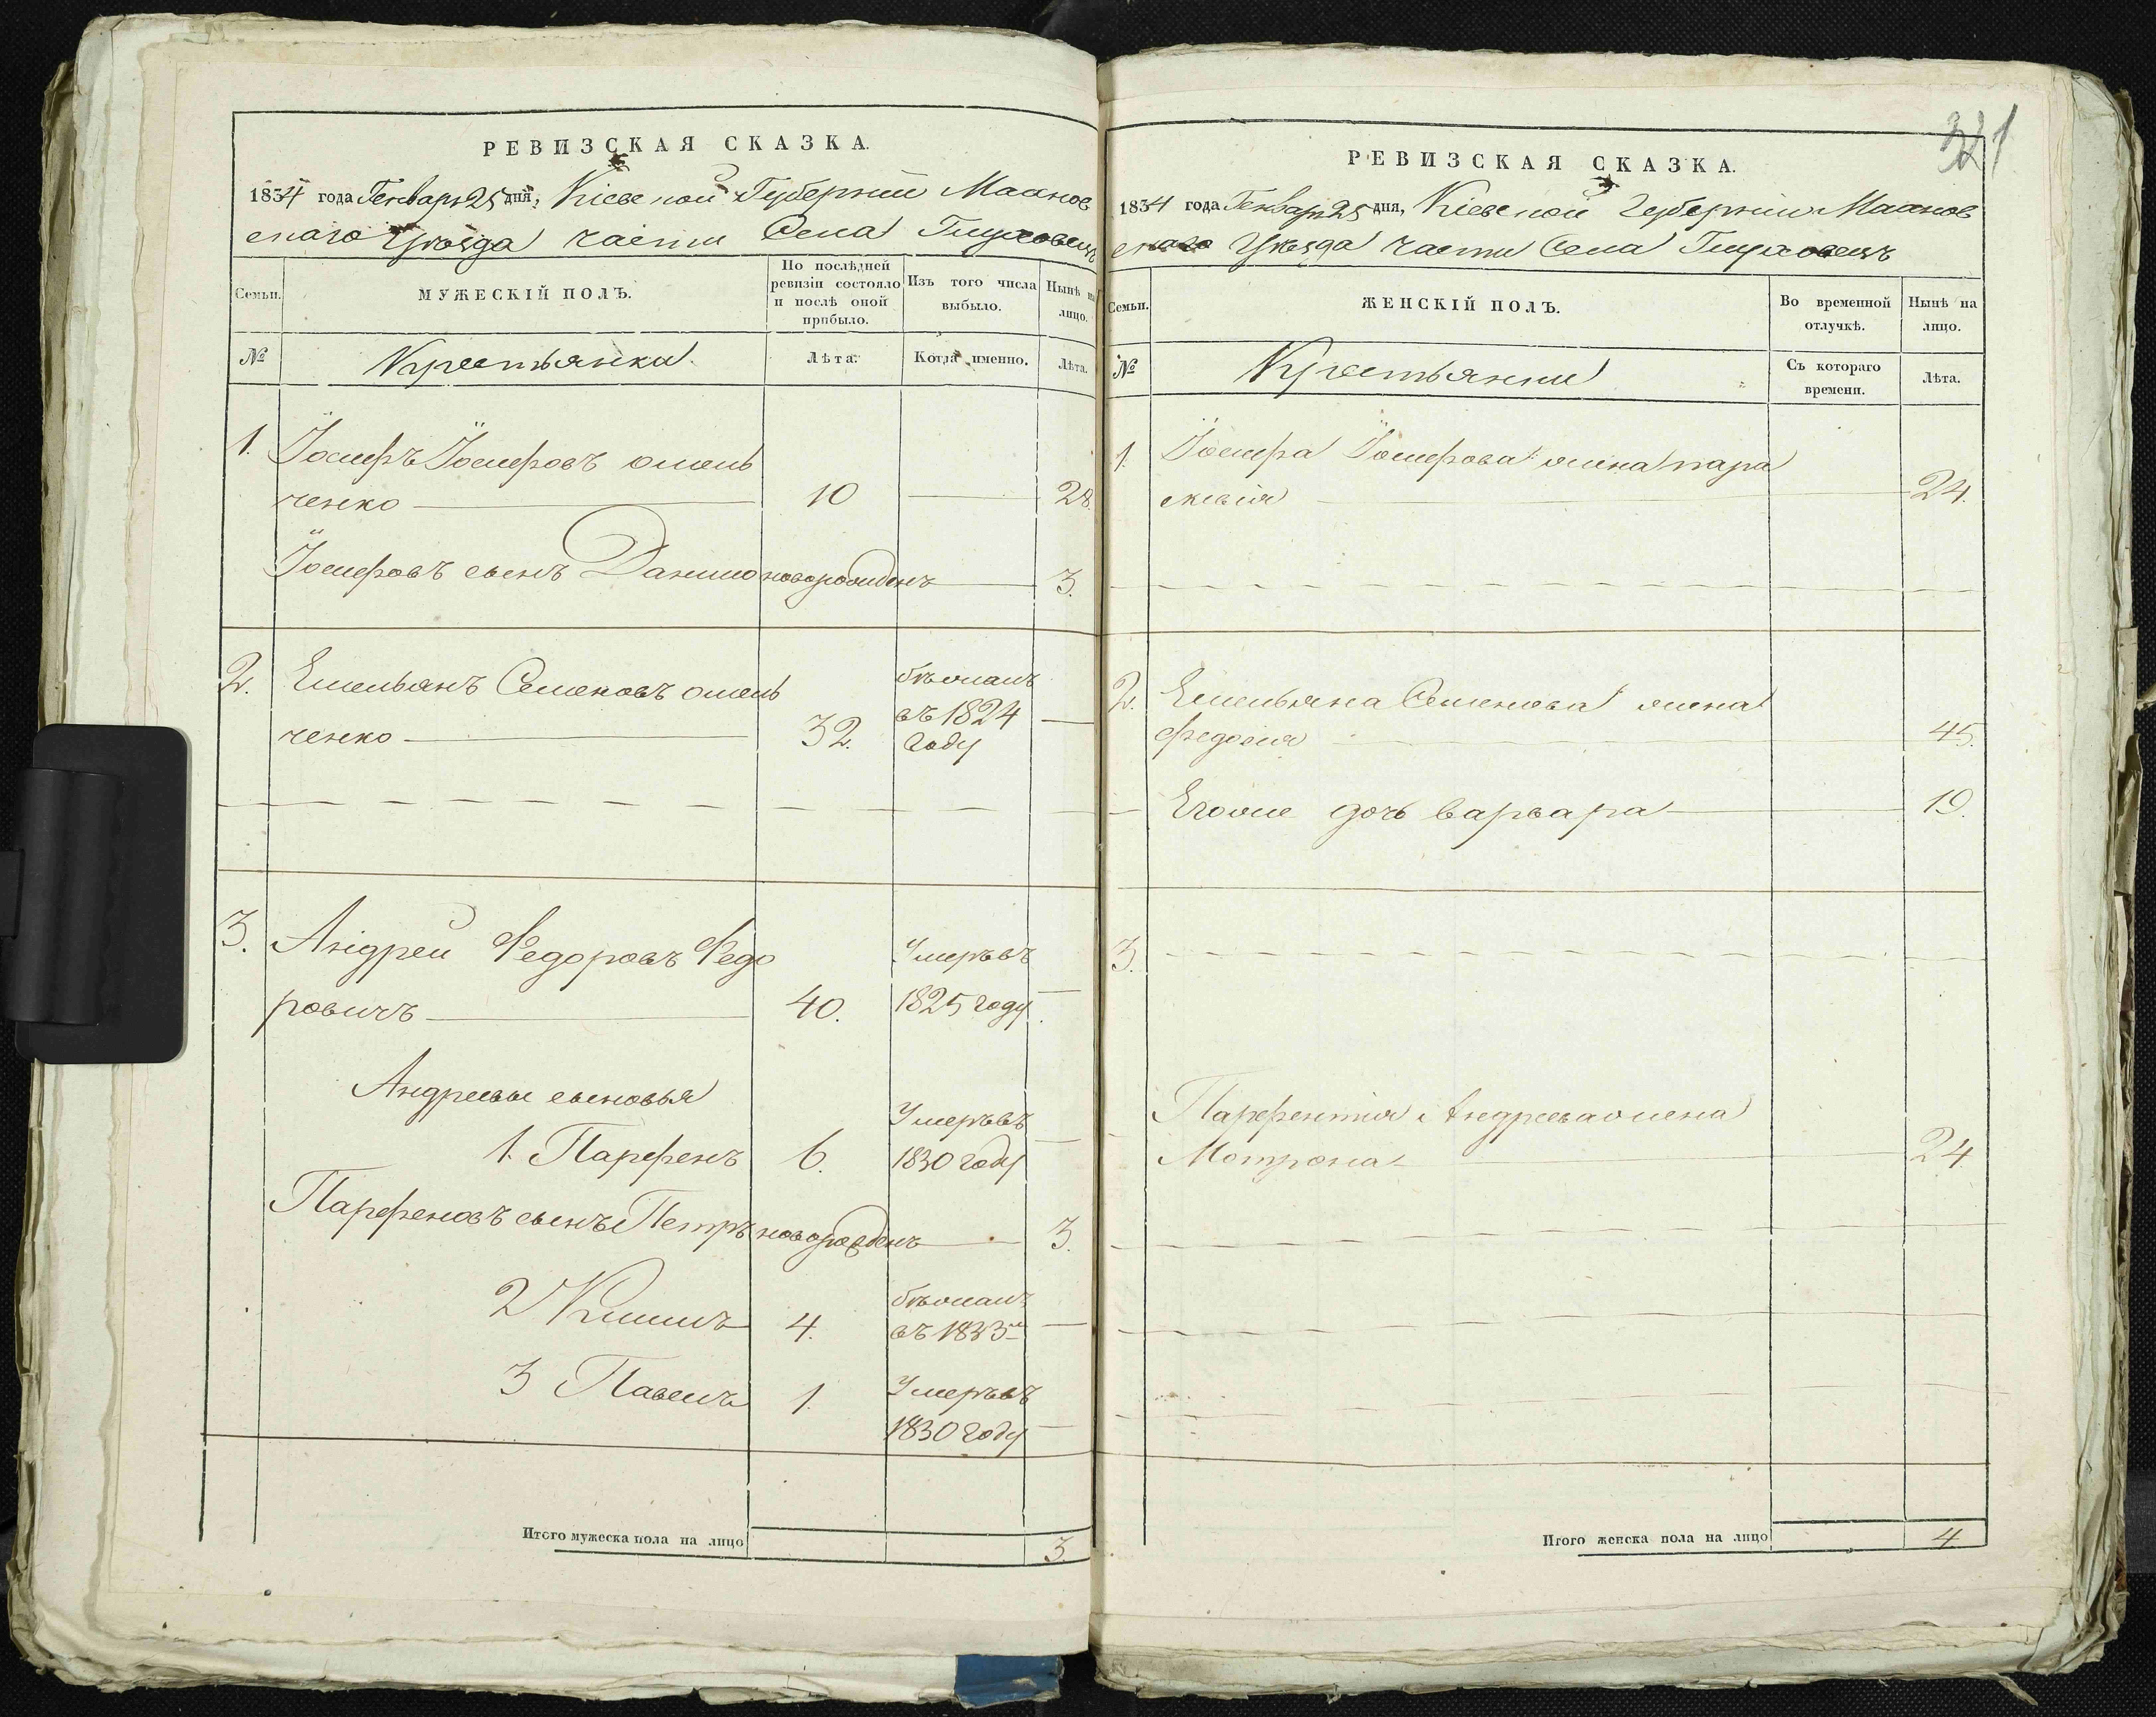 РЕВИЗСКАЯ СКАЗКА.
1834 года Генваря 25 дня, Кіевской Губерніи Махнов
скаго Уѣзда части Села Глуховецъ
Семьи.
МУЖЕСКІЙ ПОЛЪ.
По послѣдней ревизіи состояло и послѣ оной прибыло.
Изъ того числа выбыло.
Нынѣ на лицо.
№
Крестьянка
Лѣта.
Когда именно.
Лѣта.
1. Іосифъ Іосифовъ
ченко 10 28.
Іосифовъ сынъ Данило новорожденъ 3.
2. Емельянъ Семеновъ
бѣжалъ
ченко 32. въ 1824
году
3. Андрей Федоровъ Федо
Умеръ въ
ровичъ 40. 1825 году
Андреевы сыновья
Умеръ въ
1. Парфенъ 6. 1830 году
Парфеновъ сынъ Петръ новорожденъ 3.
бѣжалъ
2 Климъ 4. въ 1833
3 Павелъ 1. Умеръ въ
1830 году
Итого мужеска пола на лицо 3
321
РЕВИЗСКАЯ СКАЗКА.
1834 года Генваря 25 дня, Кіевской Губерніи Махнов
скаго Уѣзда части Села Глуховецъ
Семьи.
ЖЕНСКІЙ ПОЛЪ.
Во временной отлучкѣ.
Нынѣ на лицо.
№
Крестьянки
Съ котораго времени.
Лѣта.
1. Іосифа Іосифова жена пара
скевія 24.
2. Емельяна Семенова жена
Федосія 45.
Егоже дочь варвара 19.
3.
Парфентія Андреева жена
Мотрона 24.
Итого женска пола на лицо 4